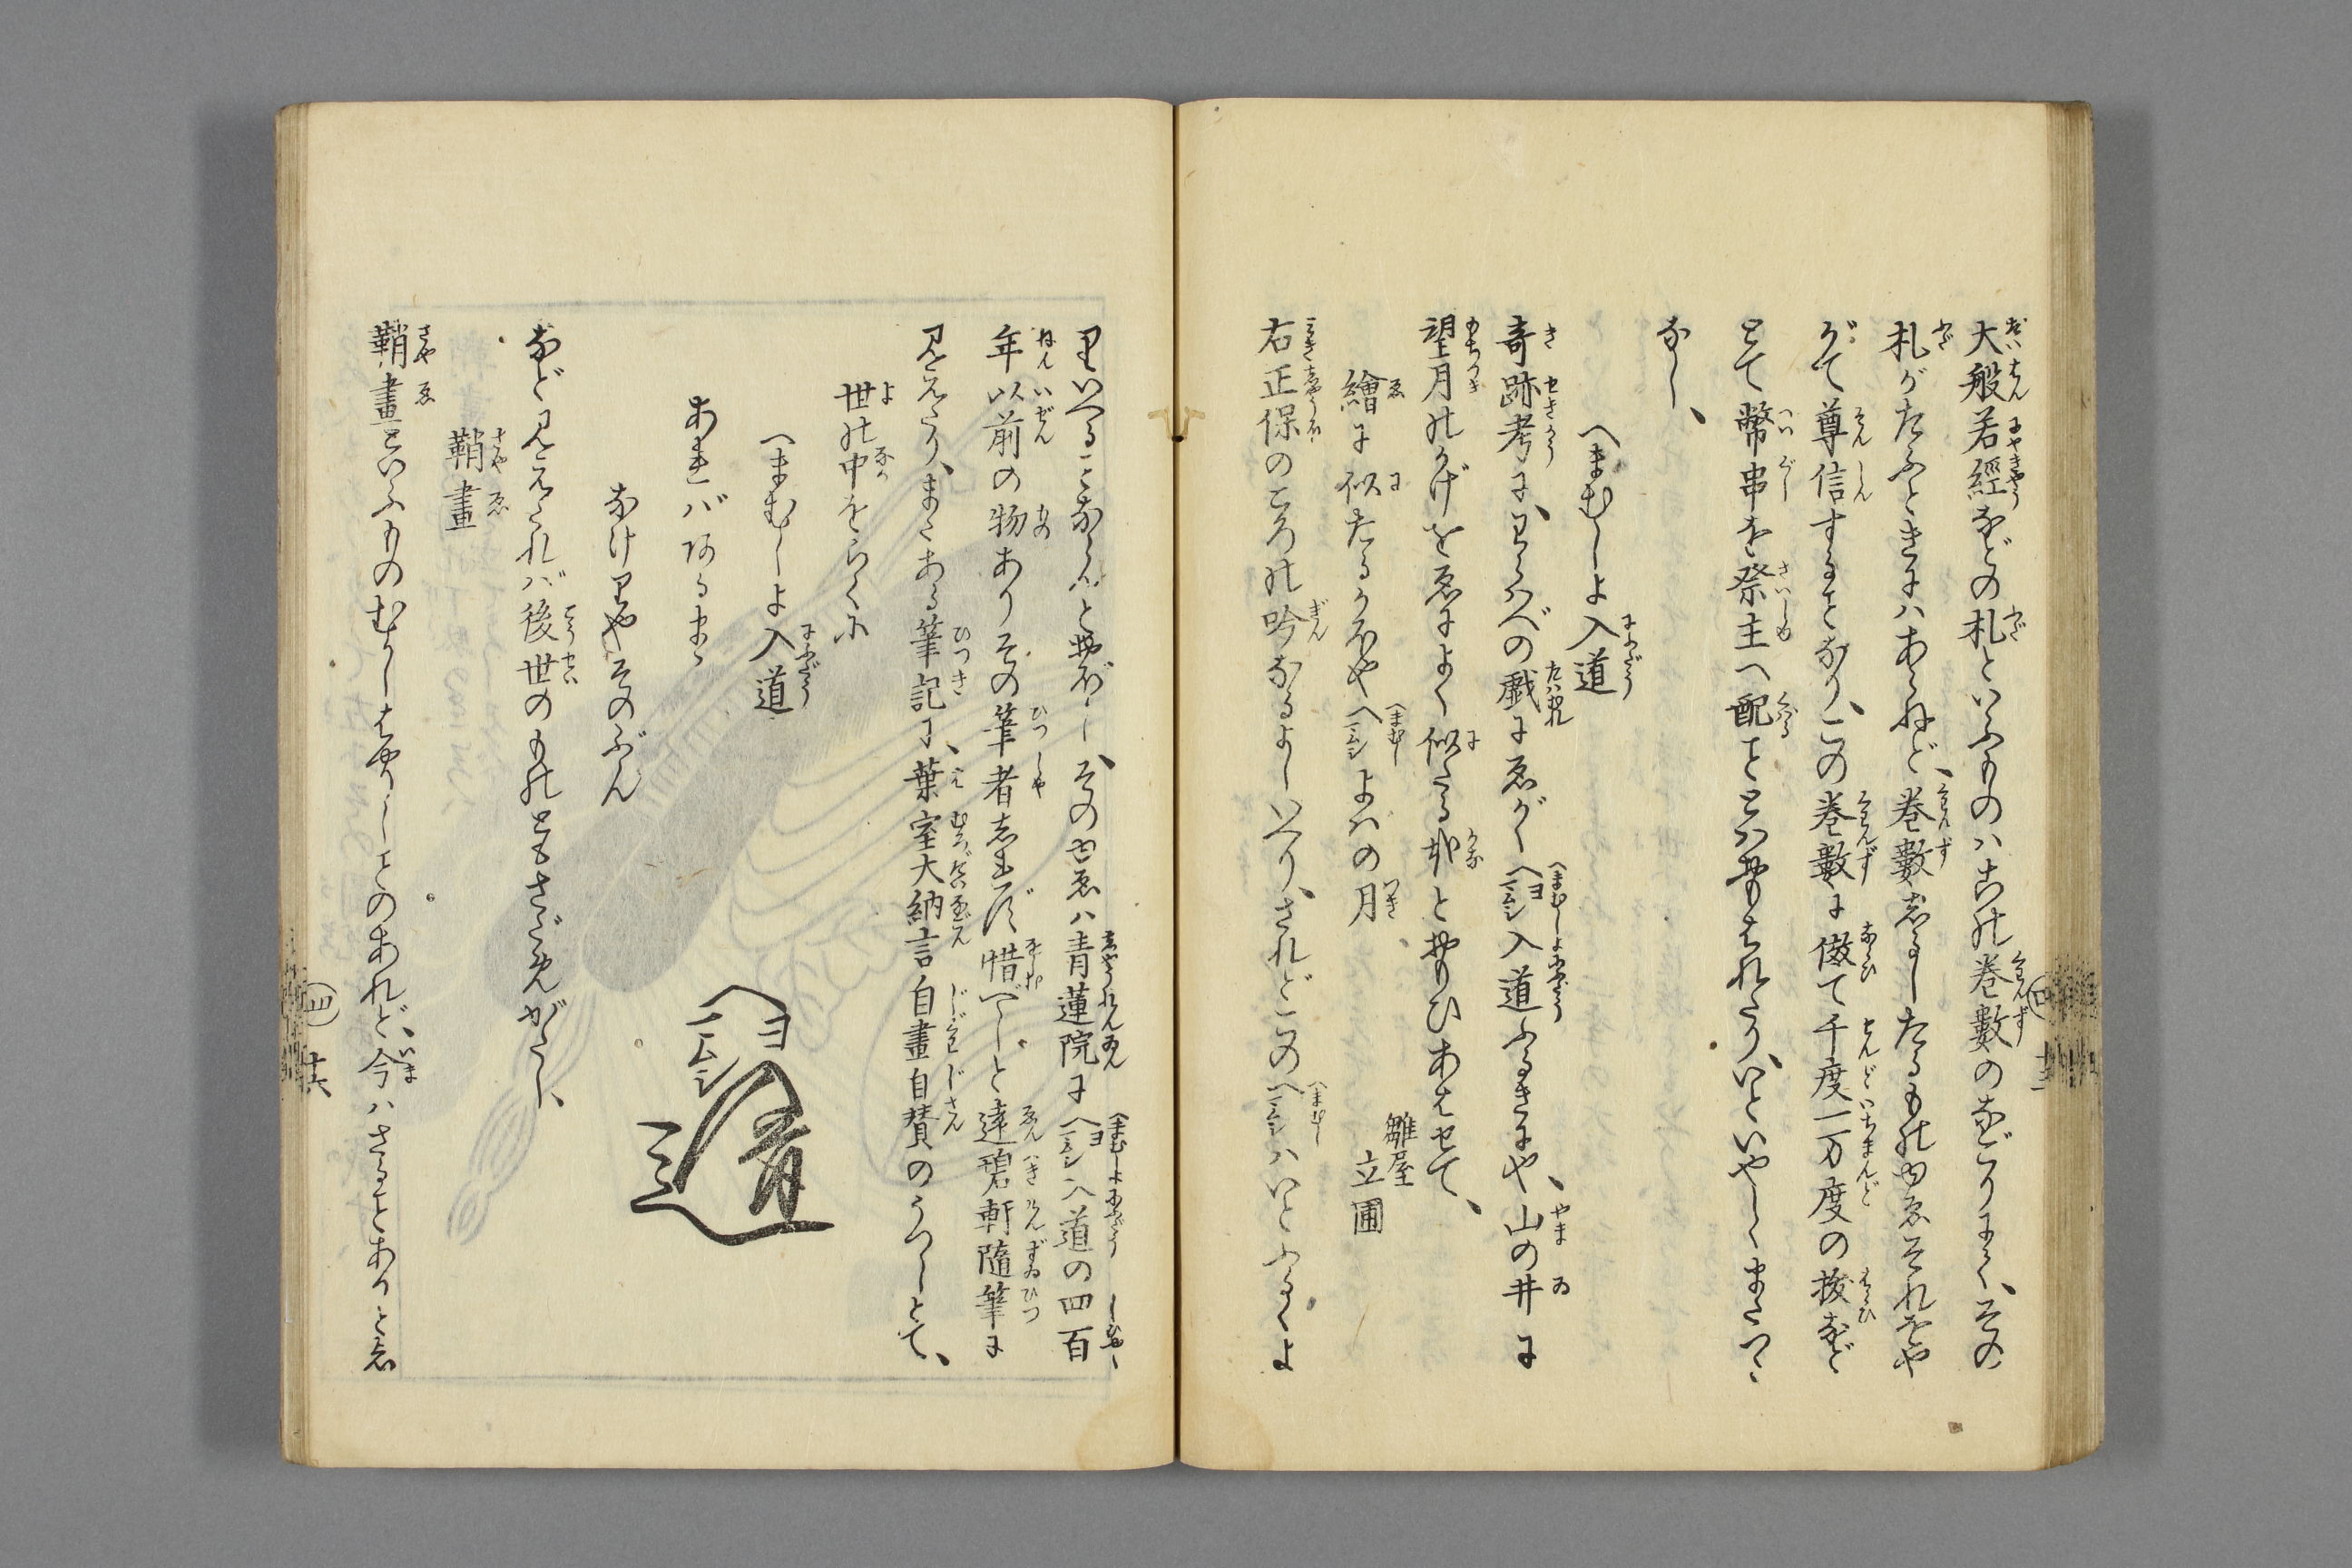 大般若經などの札といふものは古の巻數のなごりにて、その
札がたふときにはあらねど、巻數しるしたるものゆゑそれをや
がて尊信することなり、この巻數に傚て千度一万度の祓など
とて幣串を祭主へ配ことゝはおもはれたり、いといやしくまたつた
なし、
へまむしよ入道
奇跡考に、わらべの戯にゑがくヘマムシヨ入道ふるきにや、山の井に
望月のかげをゑによく似たる哉とおもひあはせて、
繪に似たるかほやヘマムシよはの月
雛屋立圃
右正保のころの吟なるよしいへり、されどこのヘマムシはいとふるくよ
りいへることならんとおぼし、そのゆゑは青蓮院にヘマムシヨ入道の四百
年以前の物ありその筆者しれず惜べしと遠碧軒隨筆に
見えたり、またある筆記に、葉室大納言自畫自賛のうつしとて、
世の中をらくに
へまむしよ入道
あればあるまゝ
なけりやそのぶん
ヘマムシヨ入道
など見えたれば後世のものともさだめがたし、
鞘畫
鞘畫といふものむかしはやりしことのあれど、今はさることありと志
四
十六